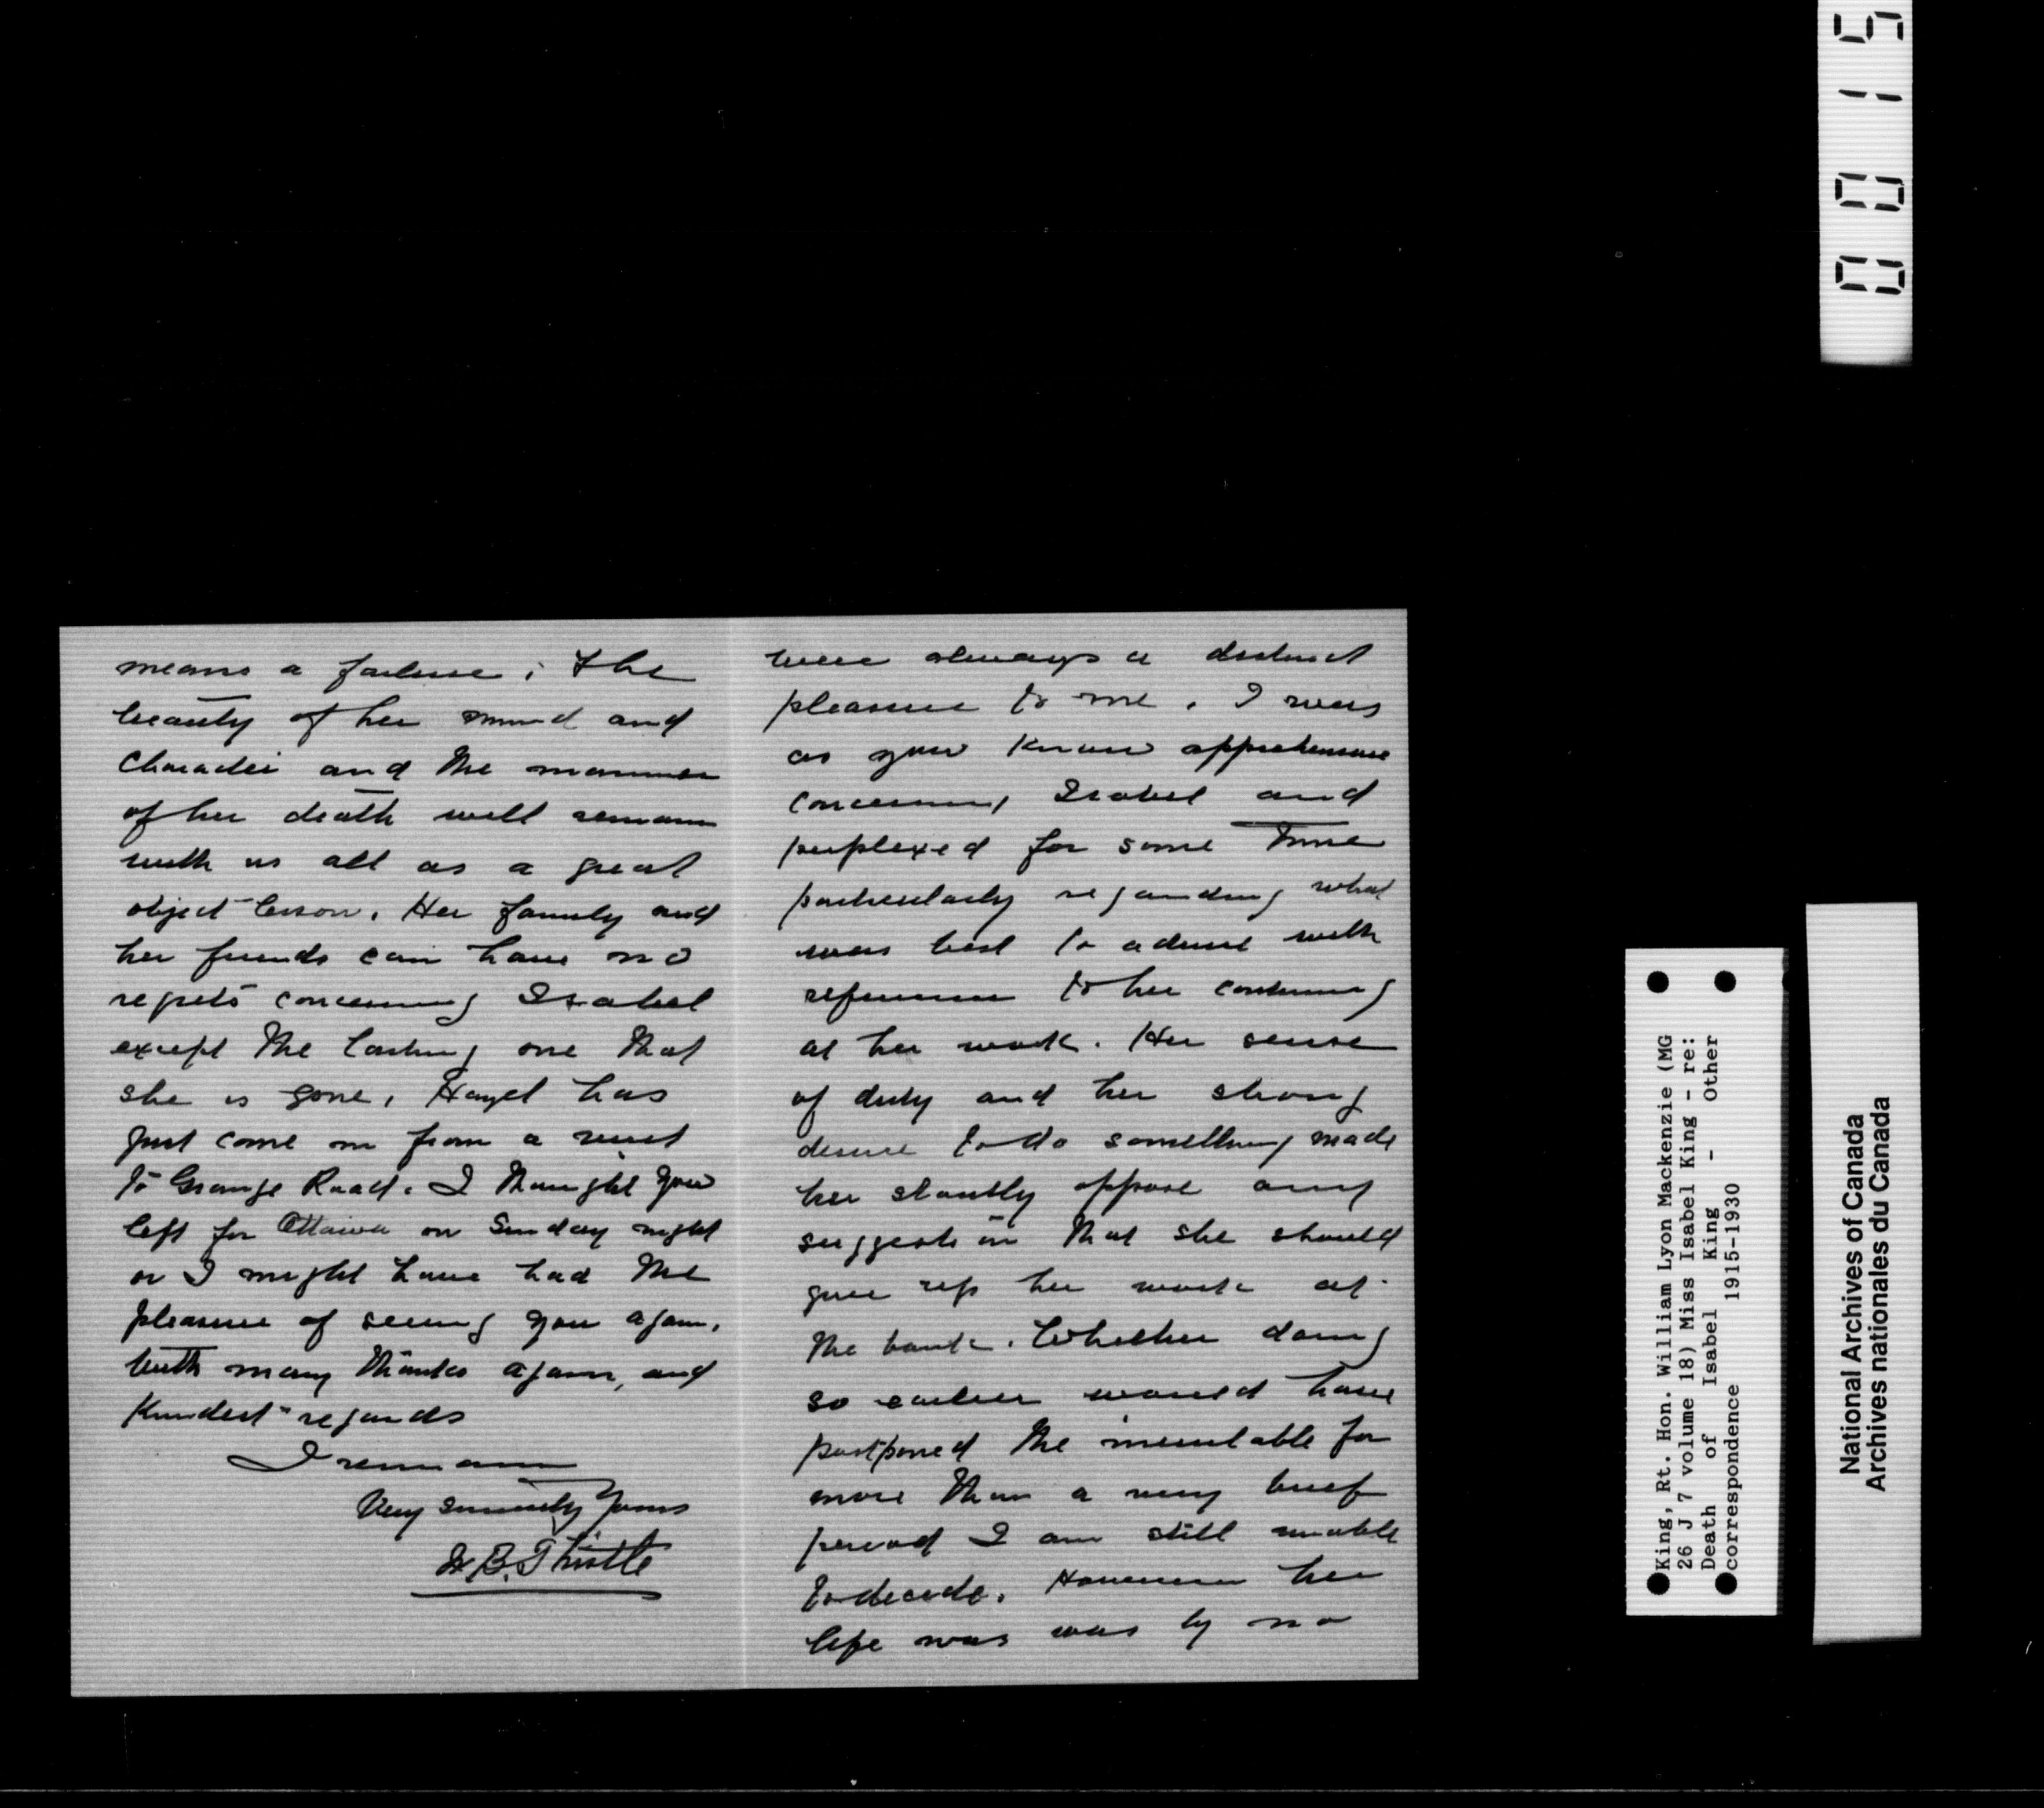 were always a distinct
pleasure to me. I was
as you know apprehensive
concerning Isabel and
perplexed for some time
particularly regarding what
was best to advise with
reference to her continuing
at her work. Her sense
of duty and her strong
desire to do something made
her stoutly oppose any
suggestion that she should
give up her work at
the bank. Whether doing
so earlier would have
postponed the inevitable for
more than a very brief
period I am still unable
to decide. However her
life was was by no
means a failure; the
beauty of her mind and
character and the manner
of her death will remain
with us all as a great
object lesson. Her family and
her friends can have no
regrets concerning Isabel
except the lasting one that
she is gone. Hazel has
just come in from a visit
to Grange Road. I thought you
left for Ottawa on Sunday night
or I might have had the
pleasure of seeing you again.
With many thanks again, and
Kindest regards
I remain
Very sincerely Yours
W. B. Thistle
0015
King, Rt. Hon. William Lyon Mackenzie (MG
26 J 7 volume 18) Miss Isabel King - re:
Death of Isabel King - Other
correspondence 1915-1930
National Archives of Canada
Archives nationales du Canada